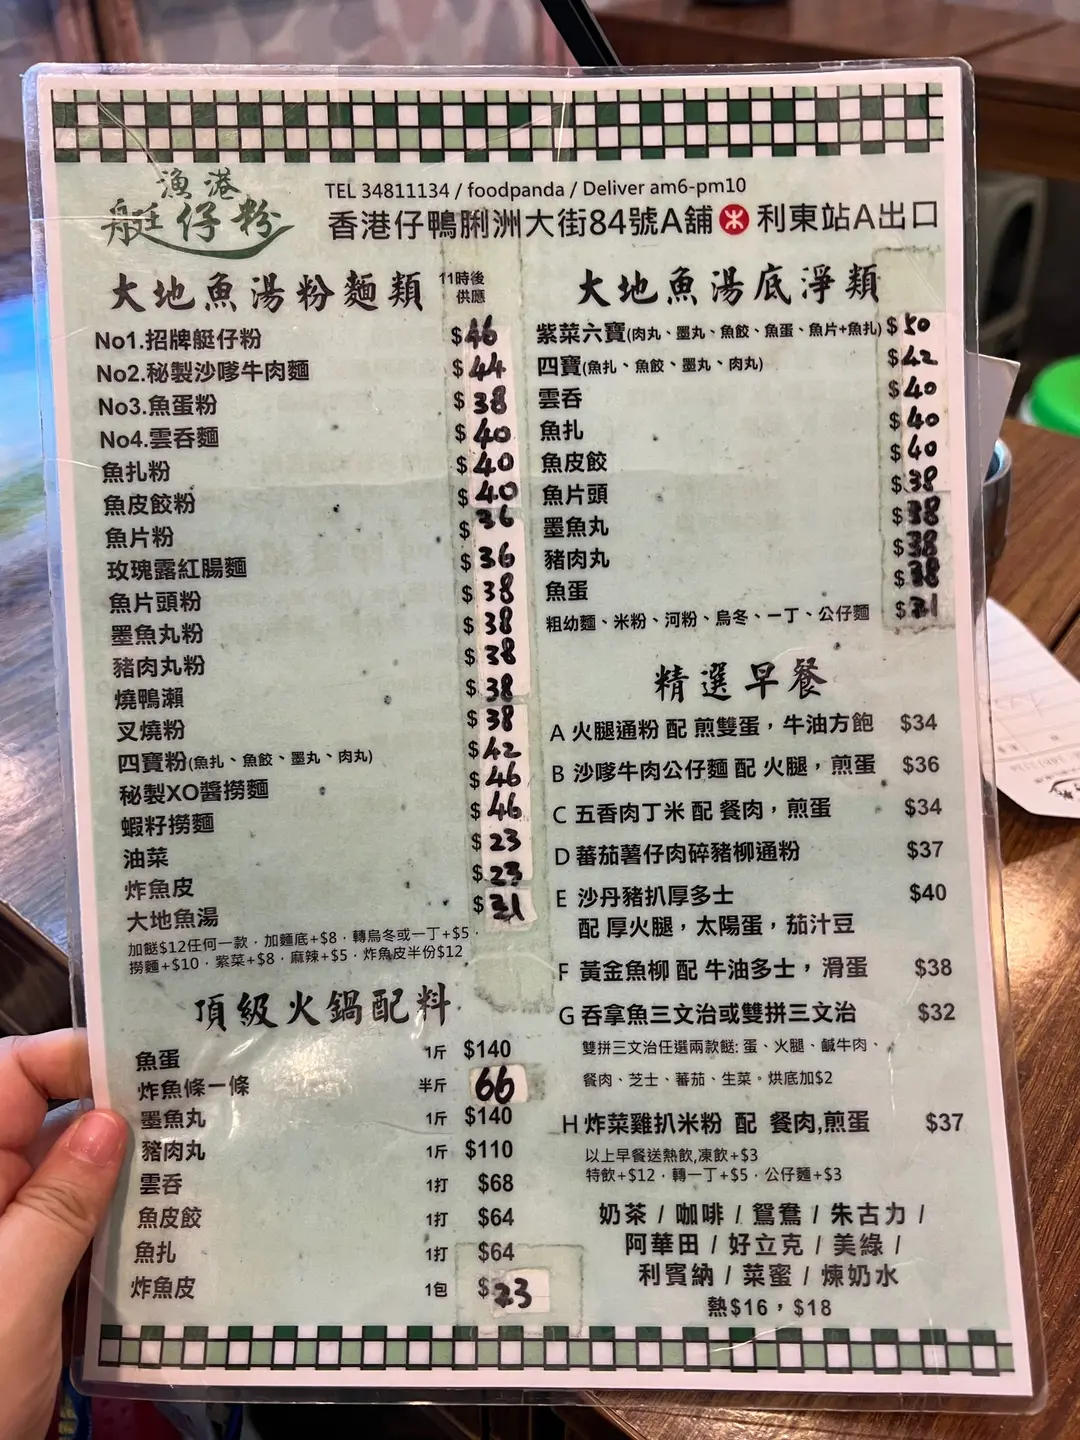 漁港
艇仔粉
TEL 34811134 / foodpanda / Deliver am6-pm10
香港仔鴨脷洲大街84號A舖 利東站A出口
大地魚湯粉麵類 11時後供應
No1.招牌艇仔粉 $46
No2.秘製沙嗲牛肉麵 $44
No3.魚蛋粉 $38
No4.雲吞麵 $40
魚扎粉 $40
魚皮餃粉 $40
魚片粉 $36
玫瑰露紅腸麵 $36
魚片頭粉 $38
墨魚丸粉 $38
豬肉丸粉 $38
燒鴨瀨 $38
叉燒粉 $38
四寶粉(魚扎、魚餃、墨丸、肉丸) $42
秘製XO醬撈麵 $46
蝦籽撈麵 $46
油菜 $23
炸魚皮 $23
大地魚湯 $31
加餸$12任何一款，加麵底+$8，轉烏冬或一丁+$5，
撈麵+$10，紫菜+$8，麻辣+$5，炸魚皮半份$12
頂級火鍋配料
魚蛋 1斤 $140
炸魚條一條 半斤 66
墨魚丸 1斤 $140
豬肉丸 1斤 $110
雲吞 1打 $68
魚皮餃 1打 $64
魚扎 1打 $64
炸魚皮 1包 $23
大地魚湯底淨類
紫菜六寶(肉丸、墨丸、魚餃、魚蛋、魚片+魚扎) $50
四寶(魚扎、魚餃、墨丸、肉丸) $42
雲吞 $40
魚扎 $40
魚皮餃 $40
魚片頭 $38
墨魚丸 $38
豬肉丸 $38
魚蛋 $38
粗幼麵、米粉、河粉、烏冬、一丁、公仔麵 $31
精選早餐
A 火腿通粉 配 煎雙蛋，牛油方飽 $34
B 沙嗲牛肉公仔麵 配 火腿，煎蛋 $36
C 五香肉丁米 配 餐肉，煎蛋 $34
D 蕃茄薯仔肉碎豬柳通粉 $37
E 沙丹豬扒厚多士 $40
配 厚火腿，太陽蛋，茄汁豆
F 黃金魚柳 配 牛油多士，滑蛋 $38
G 吞拿魚三文治或雙拼三文治 $32
雙拼三文治任選兩款餸: 蛋、火腿、鹹牛肉、
餐肉、芝士、蕃茄、生菜。烘底加$2
H 炸菜雞扒米粉 配 餐肉,煎蛋 $37
以上早餐送熱飲,凍飲+$3
特飲+$12，轉一丁+$5，公仔麵+$3
奶茶 / 咖啡 / 鴛鴦 / 朱古力 /
阿華田 / 好立克 / 美綠 /
利賓納 / 菜蜜 / 煉奶水
熱$16，$18